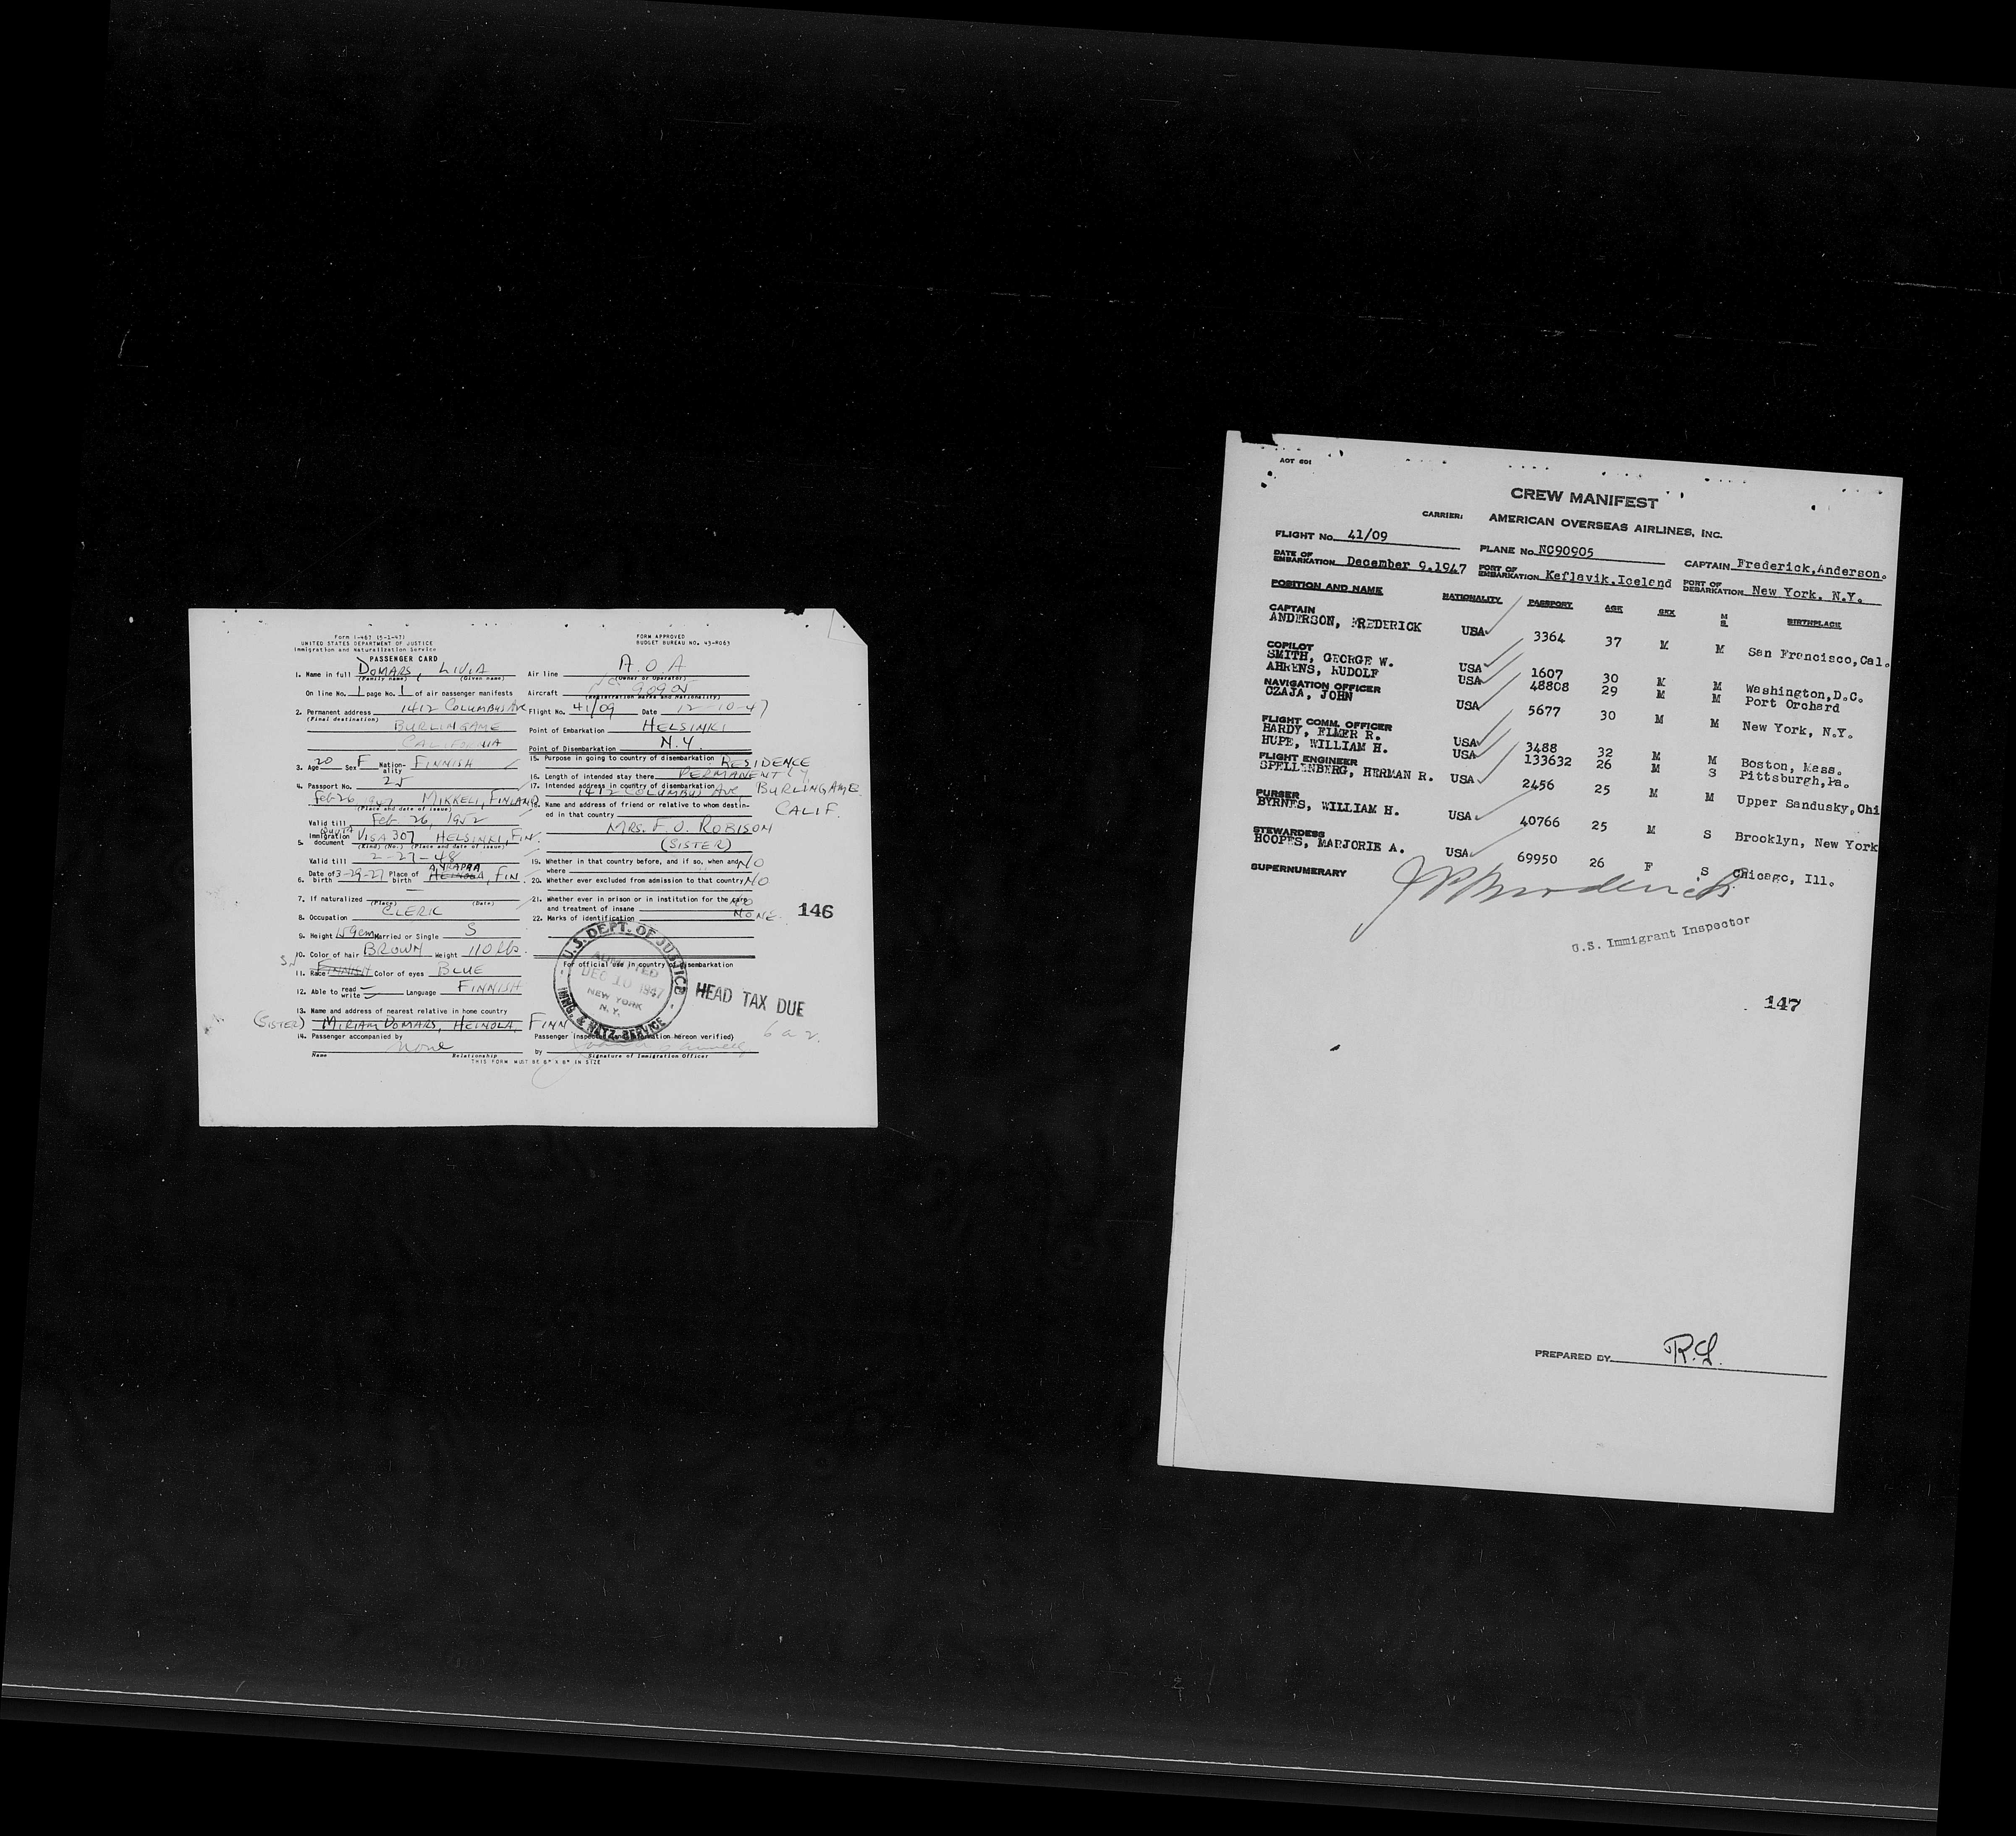 Form I-467 (5-1-47)
UNITED STATES DEPARTMENT OF JUSTICE
Immigration and Naturalization Service
FORM APPROVED
BUDGET BUREAU NO. 43-R063
PASSENGER CARD
1. Name in full DOMARS, LIVIA
(Family name) (Given name)
On line No. 1 page No. 1 of air passenger manifests
2. Permanent address 1412 COLUMBUS AVE
(Final destination)
BURLINGAME
CALIFORNIA
3. Age 20 Sex F Nationality FINNISH
4. Passport No. 25
Feb 26, 1947 MIKKELI, FINLAND
(Place and date of issue)
Valid till Feb 26, 1952
5. Immigration document QUOTA VISA 307 HELSINKI, FIN
(Kind) (No.) (Place and date of issue)
Valid till 2-27-48
6. Date of birth 3-29-27 Place of birth HEINOLA, FIN.
7. If naturalized
(Place) (Date)
8. Occupation CLERK
9. Height 159cm Married or Single S
10. Color of hair BROWN Weight 110 lbs.
11. Race FINNISH Color of eyes BLUE
12. Able to read write Language FINNISH
13. Name and address of nearest relative in home country
(SISTER) MIRIAM DOMARS, HEINOLA, FINN
14. Passenger accompanied by none
Name Relationship
THIS FORM MUST BE 6" X 8" IN SIZE
Air line A.O.A
(Owner or Operator)
Aircraft NC 90905
(Registration marks and nationality)
Flight No. 41/09 Date 12-10-47
Point of Embarkation HELSINKI
Point of Disembarkation N.Y.
15. Purpose in going to country of disembarkation RESIDENCE
16. Length of intended stay there PERMANENTLY
17. Intended address in country of disembarkation
1412 COLUMBUS AVE BURLINGAME
CALIF.
18. Name and address of friend or relative to whom destined in that country
MRS. F. O. ROBISON
(SISTER)
19. Whether in that country before, and if so, when and where NO
20. Whether ever excluded from admission to that country NO
21. Whether ever in prison or in institution for the care and treatment of insane NO
22. Marks of identification NONE.
146
For official use in country of disembarkation
U.S. DEPT. OF JUSTICE
ADMITTED
DEC 10 1947
NEW YORK
N.Y.
IMMG. & NATZ. SERVICE
HEAD TAX DUE
Passenger inspected (and information hereon verified)
by
Signature of Immigration Officer
AOT 601
CREW MANIFEST
CARRIER: AMERICAN OVERSEAS AIRLINES, INC.
FLIGHT No. 41/09 PLANE No. NC90905 CAPTAIN Frederick,Anderson.
DATE OF EMBARKATION December 9.1947 PORT OF EMBARKATION Keflavik,Iceland PORT OF DEBARKATION New York, N.Y.
POSITION AND NAME NATIONALITY PASSPORT AGE SEX M S BIRTHPLACE
CAPTAIN
ANDERSON, FREDERICK USA 3364 37 M M San Francisco,Cal.
COPILOT
SMITH, GEORGE W. USA 1607 30 M M Washington,D.C.
AHRENS, RUDOLF USA 48808 29 M M Port Orchard
NAVIGATION OFFICER
CZAJA, JOHN USA 5677 30 M M New York, N.Y.
FLIGHT COMM. OFFICER
HARDY, ELMER R. USA 3488 32 M M Boston, Mass.
HUPE, WILLIAM H. USA 133632 26 M S Pittsburgh,Pa.
FLIGHT ENGINEER
SPELLENBERG, HERMAN R. USA 2456 25 M M Upper Sandusky,Ohi
PURSER
BYRNES, WILLIAM H. USA 40766 25 M S Brooklyn, New York
STEWARDESS
HOOPES, MARJORIE A. USA 69950 26 F S Chicago, Ill.
SUPERNUMERARY
U.S. Immigrant Inspector
147
PREPARED BY R.L.